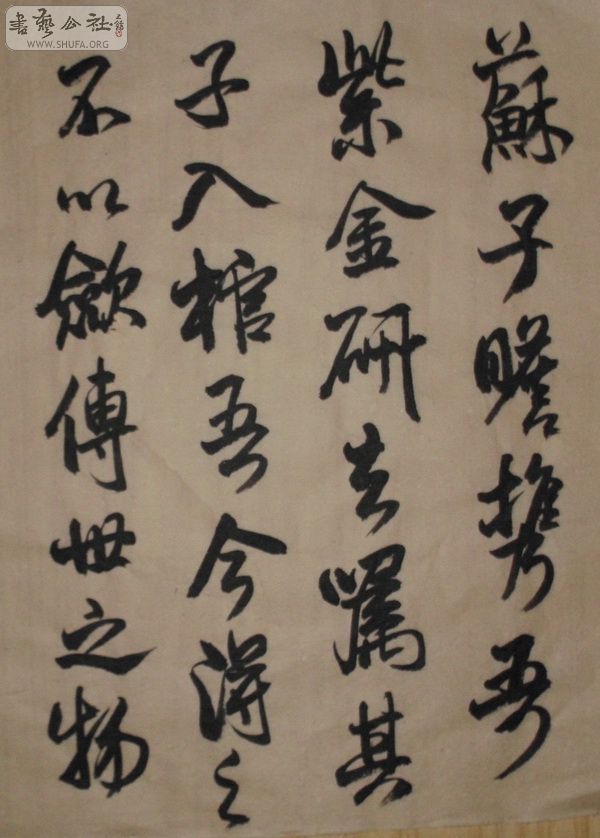 蘇子瞻携吾
紫金研去嘱其
子入棺吾今得之
不以歛傳世之物
書藝公社
WWW.SHUFA.ORG